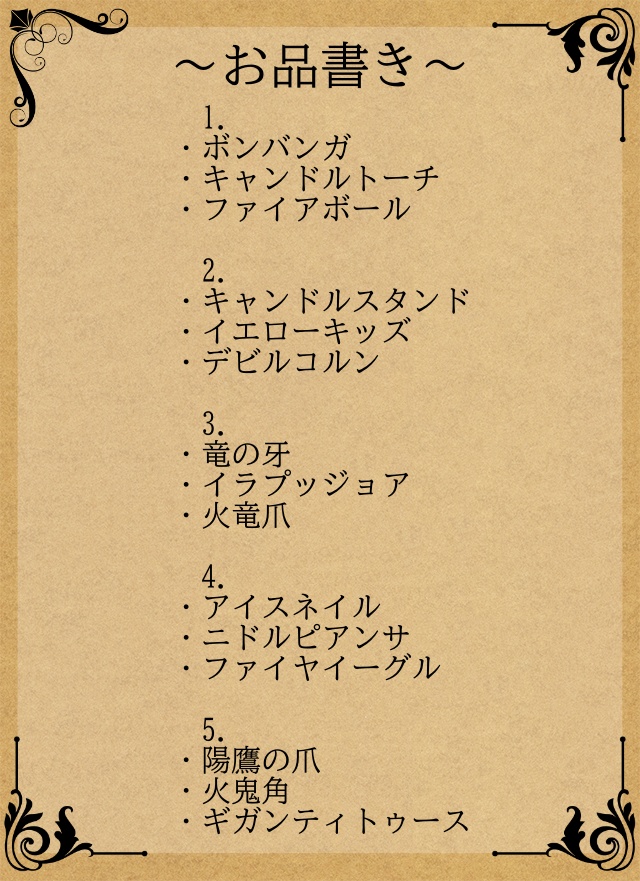 ～お品書き～
1.
・ボンバンガ
・キャンドルトーチ
・ファイアボール
2.
・キャンドルスタンド
・イエローキッズ
・デビルコルン
3.
・竜の牙
・イラプッジョア
・火竜爪
4.
・アイスネイル
・ニドルピアンサ
・ファイヤイーグル
5.
・陽鷹の爪
・火鬼角
・ギガンティトゥース